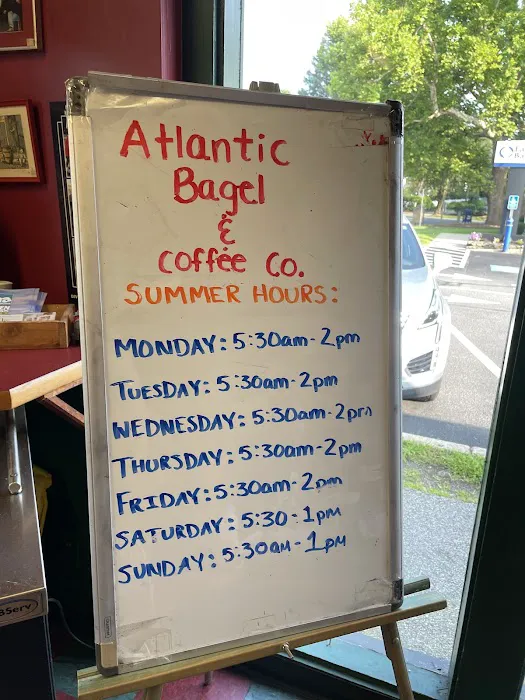 Atlantic
Bagel
&
coffee Co.
SUMMER HOURS:
MONDAY: 5:30am - 2pm
TUESDAY: 5:30am - 2pm
WEDNESDAY: 5:30am - 2pm
THURSDAY: 5:30am - 2pm
FRIDAY: 5:30am - 2pm
SATURDAY: 5:30 - 1pm
SUNDAY: 5:30am - 1pm
BServ